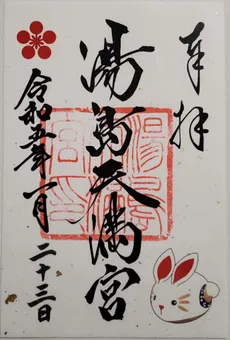 奉拝
湯島天満宮
令和五年一月
二十三日